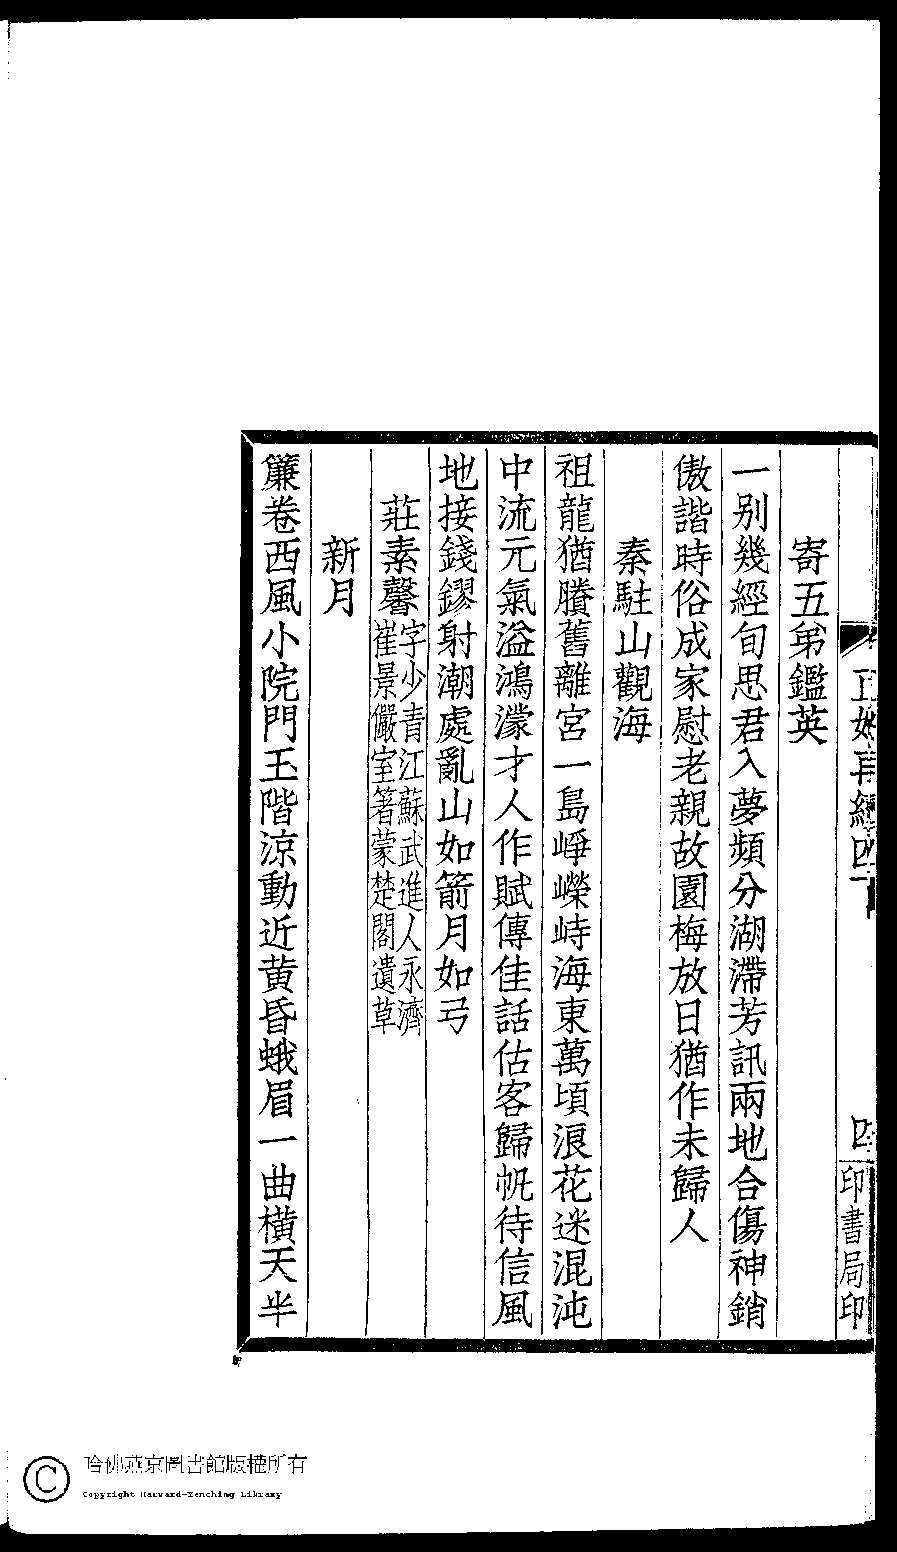 寄五弟鑑英
一別幾經旬思君入夢頻分湖滯芳訊兩地合傷神銷
傲諧時俗成家慰老親故園梅放日猶作未歸人
秦駐山觀海
祖龍猶賸舊離宮一島崢嶸峙海東萬頃浪花迷混沌
中流元氣溢鴻濛才人作賦傳佳話估客歸帆待信風
地接錢鏐射潮處亂山如箭月如弓
莊素馨
字少青江蘇武進人永濟
崔景儼室箸蒙楚閣遺草
新月
簾卷西風小院門玉階涼動近黃昏蛾眉一曲橫天半
四
印書局印
哈佛燕京圖書館版權所有
Copyright Harvard-Yenching Library